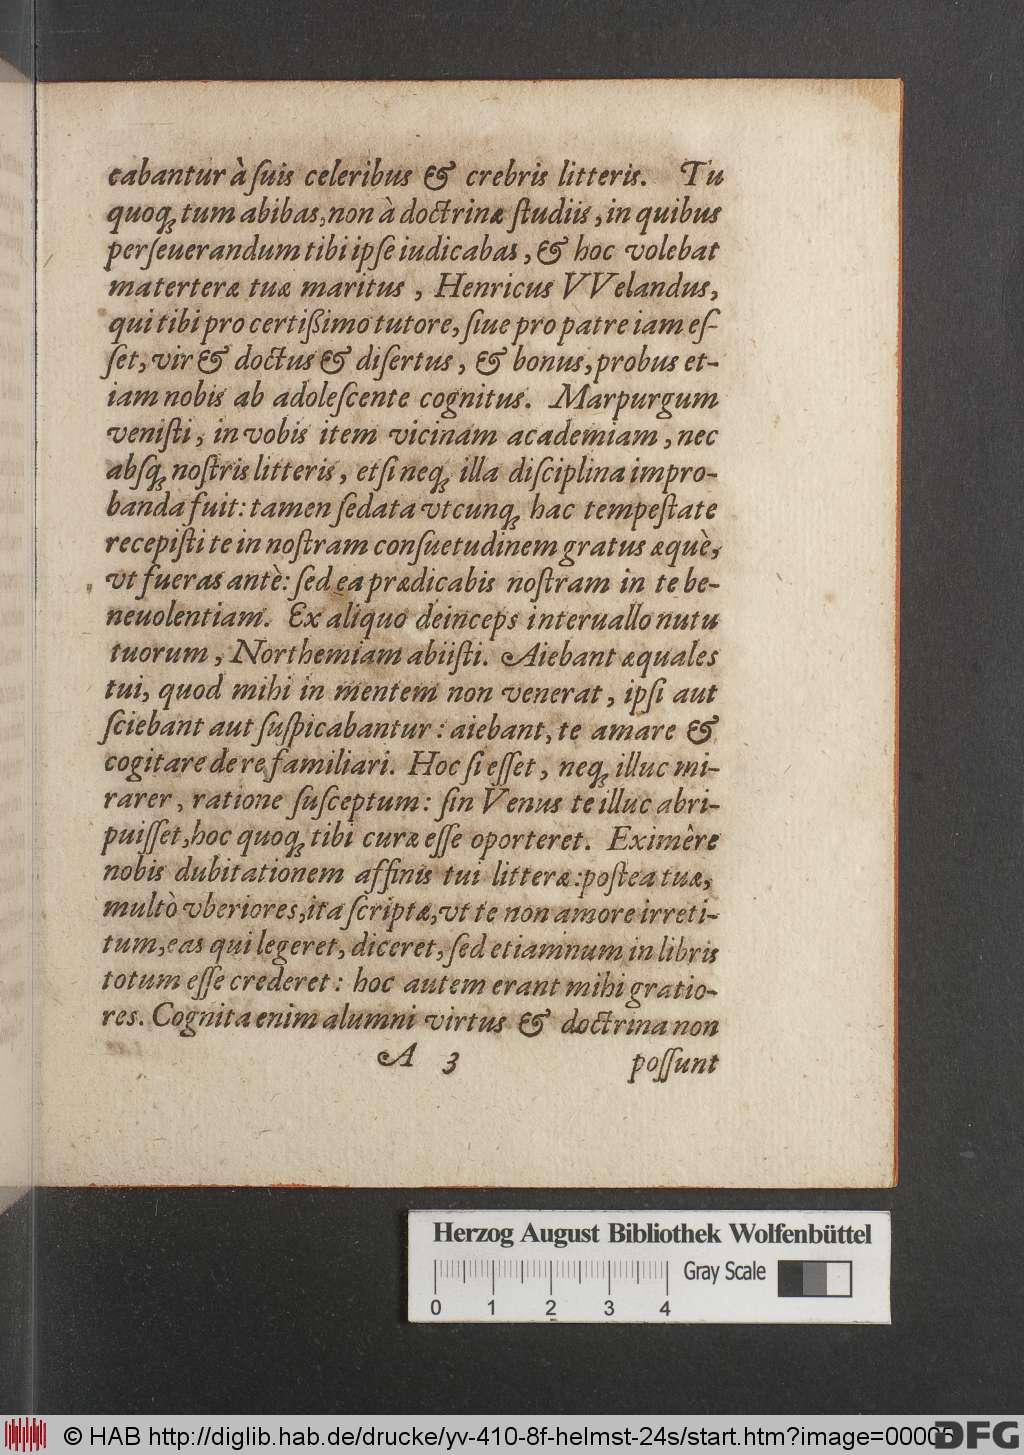 cabantur à ſuis celeribus & crebris litteris. Tu
quoq́ tum abibas, non à doctrinæ ſtudiis, in quibus
perſeuerandum tibi ipſe iudicabas, & hoc volebat
materteræ tuæ maritus, Henricus VVelandus,
qui tibi pro certißimo tutore, ſiue pro patre iam eſ-
ſet, vir & doctus & diſertus, & bonus, probus et-
iam nobis ab adoleſcente cognitus. Marpurgum
veniſti, in vobis item vicinam academiam, nec
abſq́ noſtris litteris, etſi neq́ illa diſciplina impro-
banda fuit: tamen ſedata vtcunq́ hac tempeſtate
recepiſti te in noſtram conſuetudinem gratus æquè,
vt fueras antè: ſed ea prædicabis noſtram in te be-
neuolentiam. Ex aliquo deinceps interuallo nutu
tuorum, Northemiam abiiſti. Aiebant æquales
tui, quod mihi in mentem non venerat, ipſi aut
ſciebant aut ſuſpicabantur: aiebant, te amare &
cogitare de re familiari. Hoc ſi eſſet, neq́ illuc mi-
rarer, ratione ſuſceptum: ſin Venus te illuc abri-
puiſſet, hoc quoq́ tibi curæ eſſe oporteret. Eximêre
nobis dubitationem affinis tui litteræ: poſtea tuæ,
multò vberiores, ita ſcriptæ, vt te non amore irreti-
tum, eas qui legeret, diceret, ſed etiamnum in libris
totum eſſe crederet: hoc autem erant mihi gratio-
res. Cognita enim alumni virtus & doctrina non
A 3 poſſunt
Herzog August Bibliothek Wolfenbüttel
Gray Scale
0 1 2 3 4
© HAB http://diglib.hab.de/drucke/yv-410-8f-helmst-24s/start.htm?image=00005
DFG